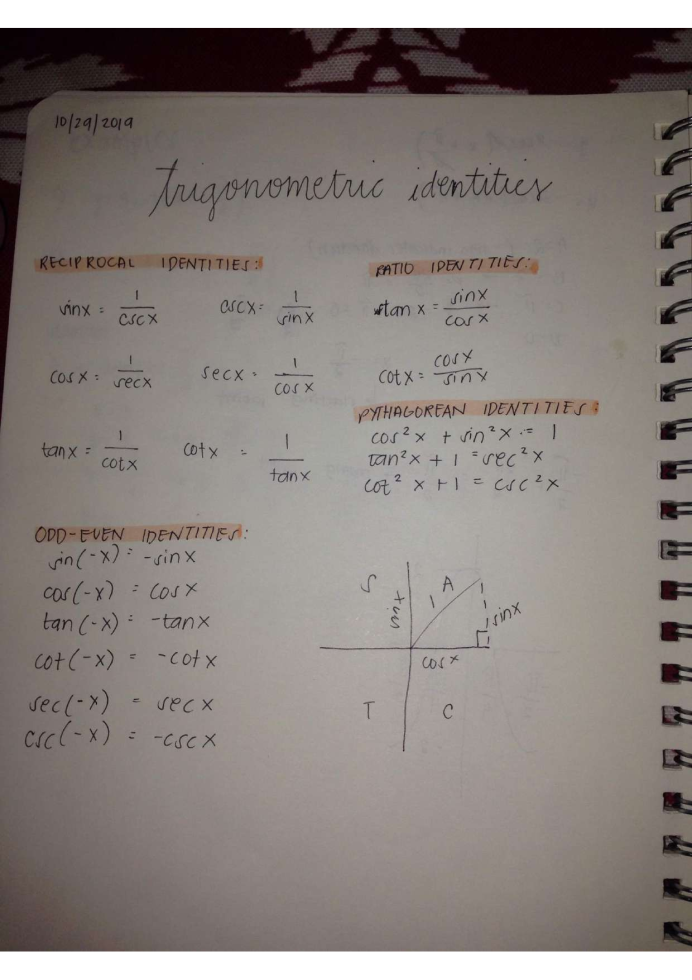 10/29/2019
trigonometric identities
RECIPROCAL IDENTITIES:
sinx = 1/cscx
cscx = 1/sinx
cosx = 1/secx
secx = 1/cosx
tanx = 1/cotx
cotx = 1/tanx
RATIO IDENTITIES:
tan x = sinx/cosx
cotx = cosx/sinx
PYTHAGOREAN IDENTITIES:
cos²x + sin²x = 1
tan²x + 1 = sec²x
cot²x + 1 = csc²x
ODD-EVEN IDENTITIES:
sin(-x) = -sinx
cos(-x) = cosx
tan(-x) = -tanx
cot(-x) = -cotx
sec(-x) = secx
csc(-x) = -cscx
S
A
1
sinx
cosx
T
C